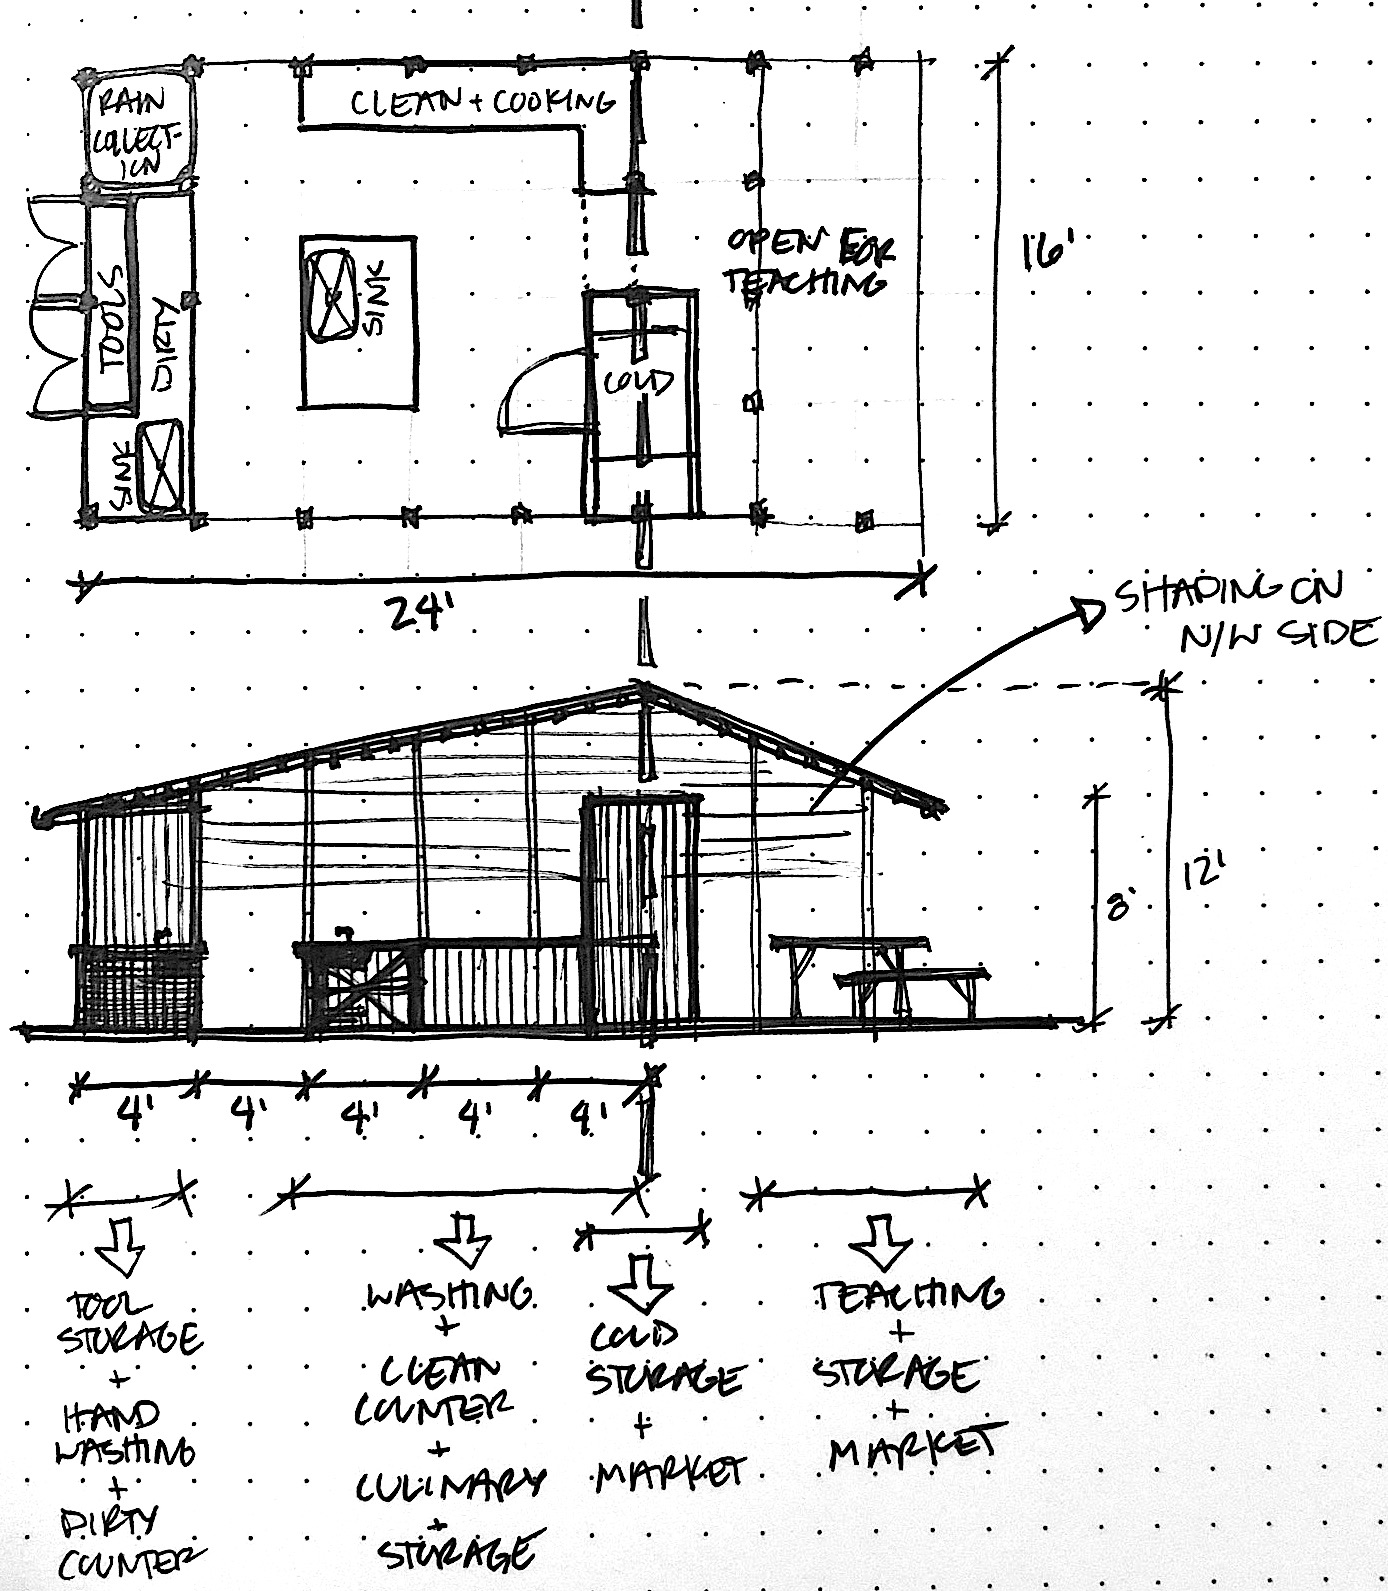 RAIN
COLLECT-
ION
CLEAN + COOKING
TOOLS
DIRTY
SINK
SINK
COLD
OPEN FOR
TEACHING
16'
24'
SHADING ON
N/W SIDE
8'
12'
4'
4'
4'
4'
4'
TOOL
STORAGE
+
HAND
WASHING
+
DIRTY
COUNTER
WASHING
+
CLEAN
COUNTER
+
CULINARY
+
STORAGE
COLD
STORAGE
+
MARKET
TEACHING
+
STORAGE
+
MARKET